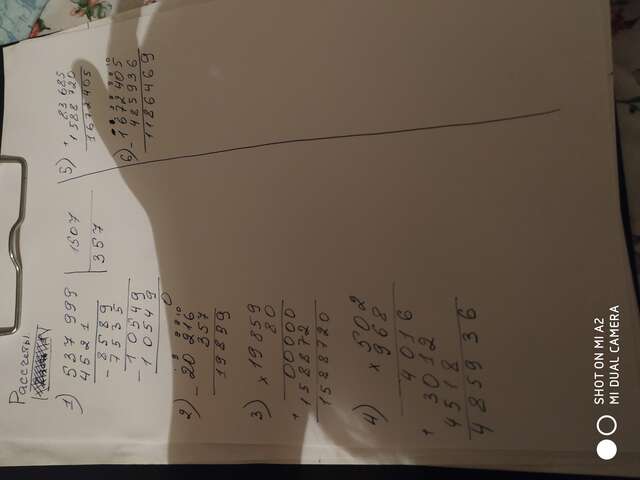 Рассчеты
1) 537 999 | 1507
4521 357
- 8589
7535
- 10549
- 10549
0
2) - 20 216
357
19859
3) x 19859
80
00000
+ 158872
1588720
4) x 502
968
4016
+ 3012
4518
485936
5) + 83685
1588720
1672405
6) - 1672405
485936
1186469
SHOT ON MI A2
MI DUAL CAMERA